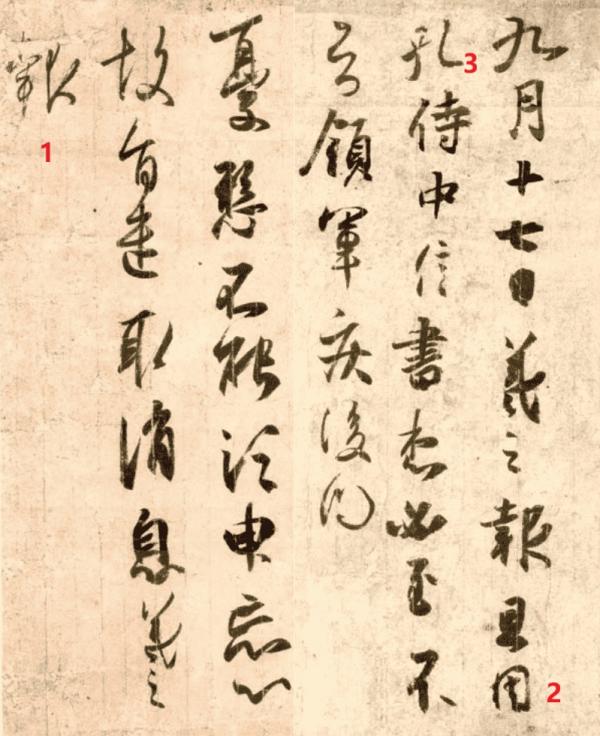 九月十七日羲之報且因
2
孔侍中信書想必至不
3
知領軍疾後問
憂懸不能須臾忘心
故旨遣取消息羲之
報
1